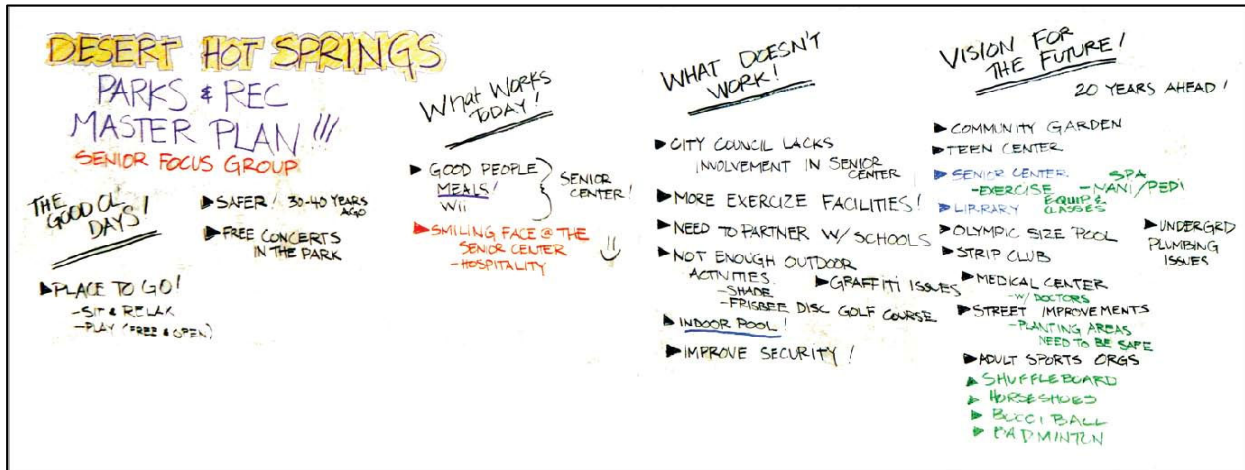 DESERT HOT SPRINGS
PARKS & REC
MASTER PLAN !!!
SENIOR FOCUS GROUP
THE
GOOD OL
DAYS!
▶PLACE TO GO!
-SIT & RELAX
-PLAY (FREE & OPEN)
▶SAFER! 30-40 YEARS
AGO
▶FREE CONCERTS
IN THE PARK
What WORKS
TODAY!
▶GOOD PEOPLE
MEALS!
Wii
SENIOR
CENTER!
▶SMILING FACE @ THE
SENIOR CENTER
-HOSPITALITY
WHAT DOESN'T
WORK!
▶CITY COUNCIL LACKS
INVOLVEMENT IN SENIOR
CENTER
▶MORE EXERCIZE FACILITIES!
▶NEED TO PARTNER W/ SCHOOLS
▶NOT ENOUGH OUTDOOR
ACTIVITIES
-SHADE
-FRISBEE DISC GOLF COURSE
▶GRAFFITI ISSUES
▶INDOOR POOL!
▶IMPROVE SECURITY!
VISION FOR
THE FUTURE!
20 YEARS AHEAD!
▶COMMUNITY GARDEN
▶TEEN CENTER
▶SENIOR CENTER SPA
-EXERCISE -MANI/PEDI
EQUIP &
CLASSES
▶LIBRARY
▶OLYMPIC SIZE POOL
▶STRIP CLUB
▶MEDICAL CENTER
-W/ DOCTORS
▶STREET IMPROVEMENTS
-PLANTING AREAS
NEED TO BE SAFE
▶ADULT SPORTS ORGS
▶SHUFFLEBOARD
▶HORSESHOES
▶BOCCI BALL
▶BADMINTON
▶UNDERGRD
PLUMBING
ISSUES